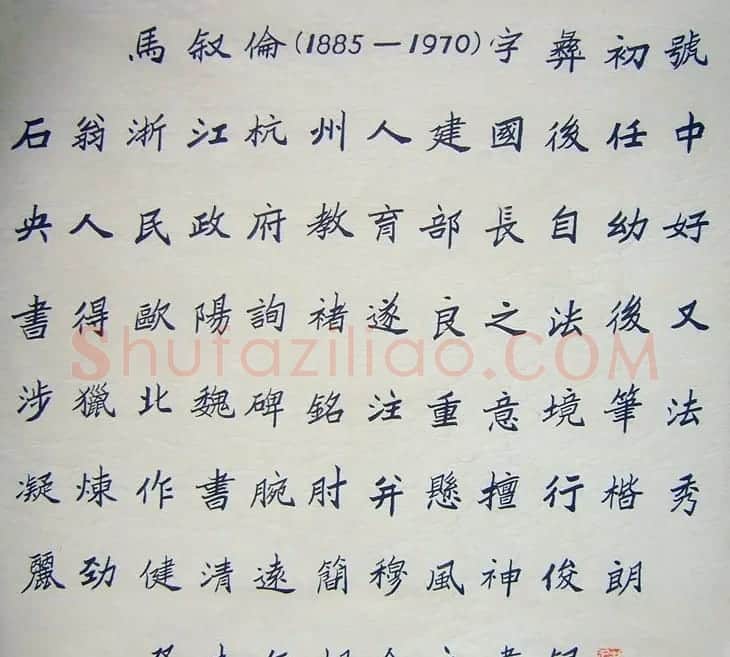 馬叙倫(1885—1970)字彝初號
石翁浙江杭州人建國後任中
央人民政府教育部長自幼好
書得歐陽詢褚遂良之法後又
涉獵北魏碑銘注重意境筆法
凝煉作書腕肘并懸擅行楷秀
麗勁健清遠簡穆風神俊朗
Shufaziliao.COM